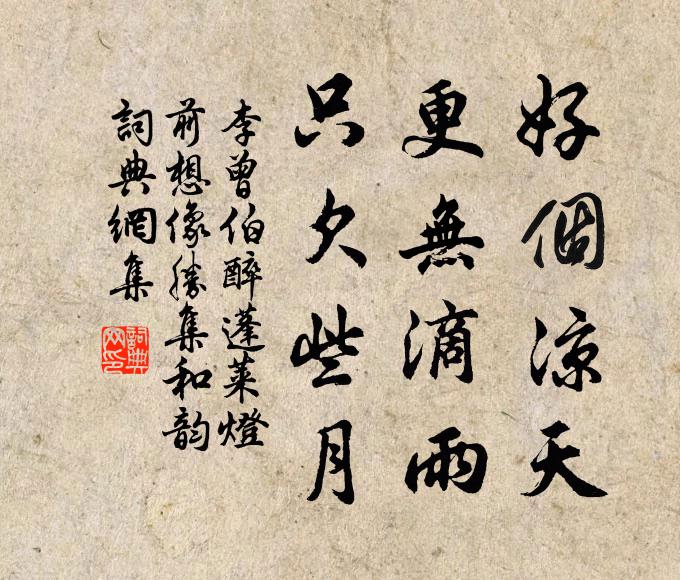 好個涼天
更無滴雨
只欠些月
李曾伯醉蓬萊燈
前想像勝集和韵
詞典網集
詞典网印